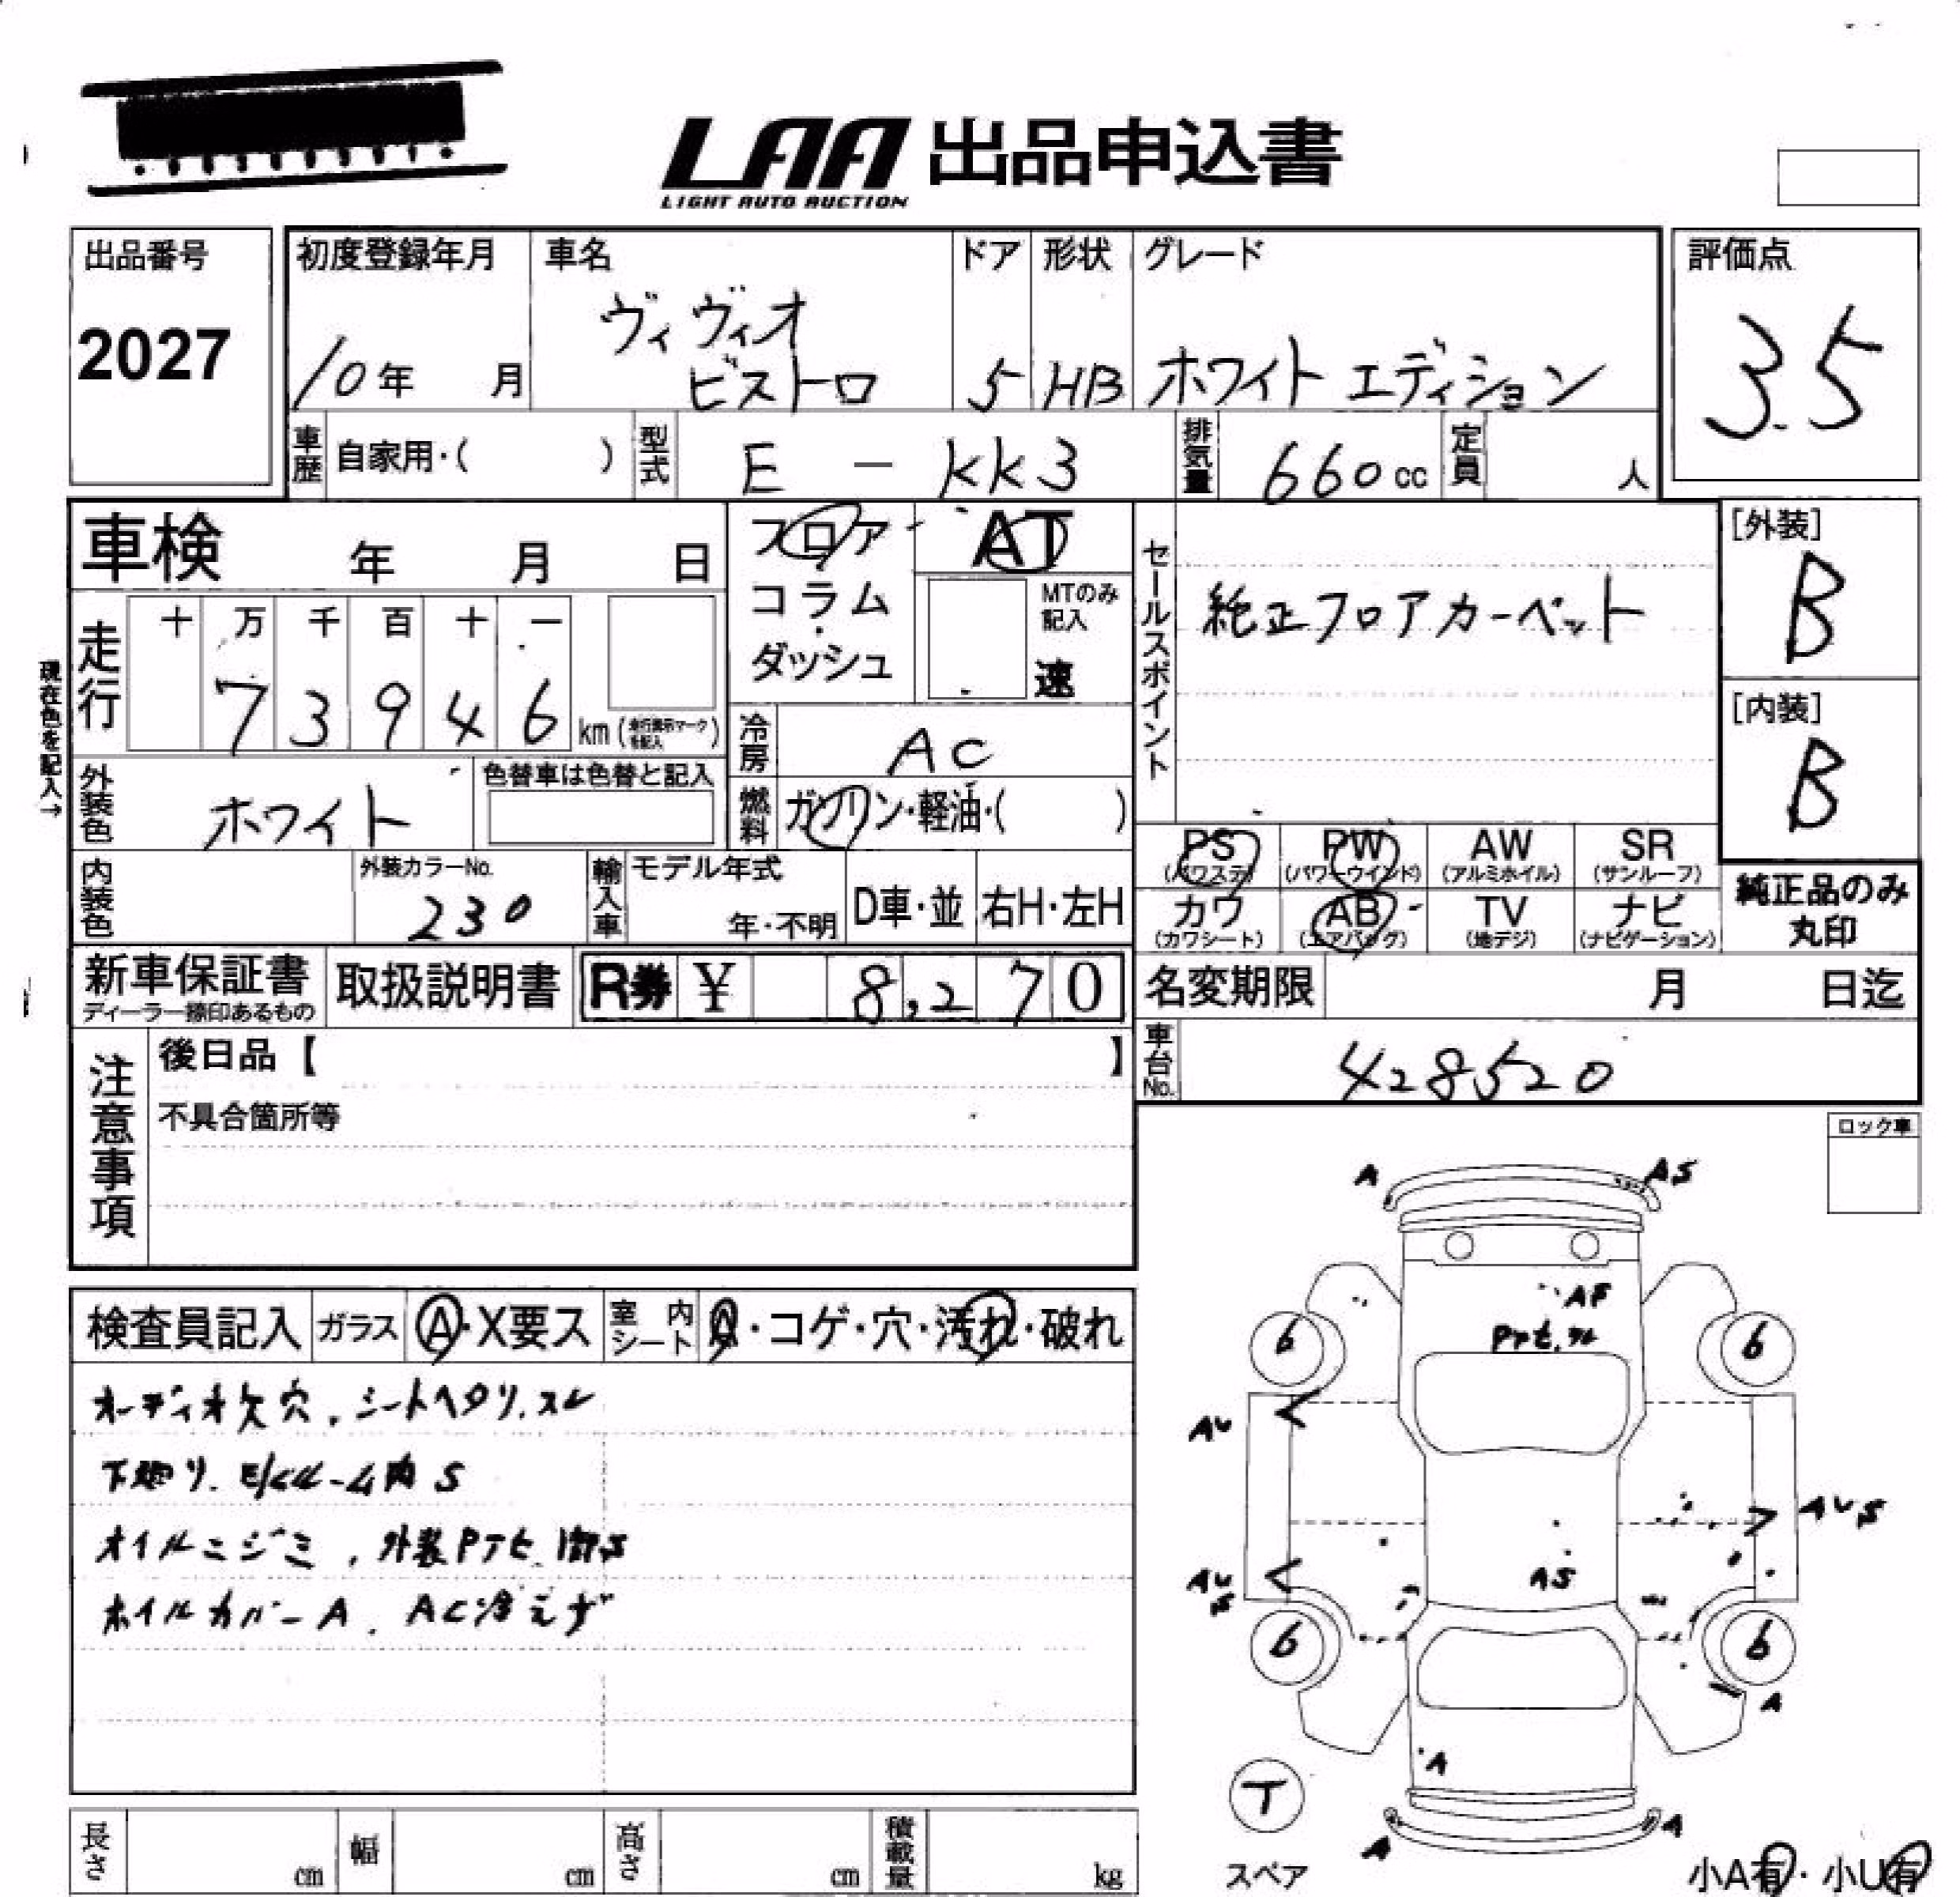 LAA 出品申込書
LIGHT AUTO AUCTION
出品番号
2027
初度登録年月
10年 月
車名
ヴィヴィオ
ビストロ
ドア
5
形状
HB
グレード
ホワイト エディション
評価点
3.5
車歴 自家用・( )
型式 E - KK3
排気量 660cc
定員 人
車検 年 月 日
フロア・
コラム
・
ダッシュ
AT
MTのみ
記入
速
走行
十 万 千 百 十 一
7 3 9 4 6 km (走行表示マークを記入)
現在色を記入→
冷房 AC
燃料 ガソリン・軽油・( )
外装色 ホワイト
色替車は色替と記入
内装色
外装カラーNo.
230
輸入車
モデル年式
年・不明
D車・並
右H・左H
セールスポイント
純正フロアカーペット
[外装]
B
[内装]
B
PS
(パワステ)
PW
(パワーウインド)
AW
(アルミホイル)
SR
(サンルーフ)
カワ
(カワシート)
AB
(エアバッグ)
TV
(地デジ)
ナビ
(ナビゲーション)
純正品のみ
丸印
新車保証書
ディーラー捺印あるもの
取扱説明書
R券 ¥ 8,270
名変期限 月 日迄
車台No. 428520
注意事項
後日品【 】
不具合箇所等
ロック車
検査員記入
ガラス A・X要ス
室内シート A・コゲ・穴・汚れ・破れ
オーディオ欠穴、シートヘタリ、スレ
下廻り、E/ルーム内 S
オイルニジミ、外装PTセ、
ホイルカバーA、AC冷えず
A
AS
AF
PTセ,
6
6
AU
AUS
AU
AS
6
6
A
A
A
A
T
スペア
小A有・小U有
長さ cm
幅 cm
高さ cm
積載量 kg